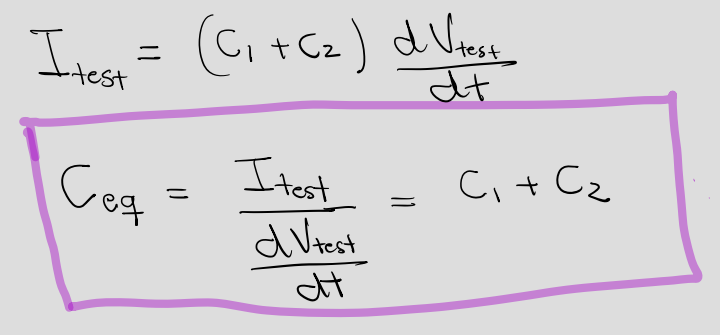 I_test = (C₁ + C₂) dV_test/dt
C_eq = I_test / (dV_test/dt) = C₁ + C₂